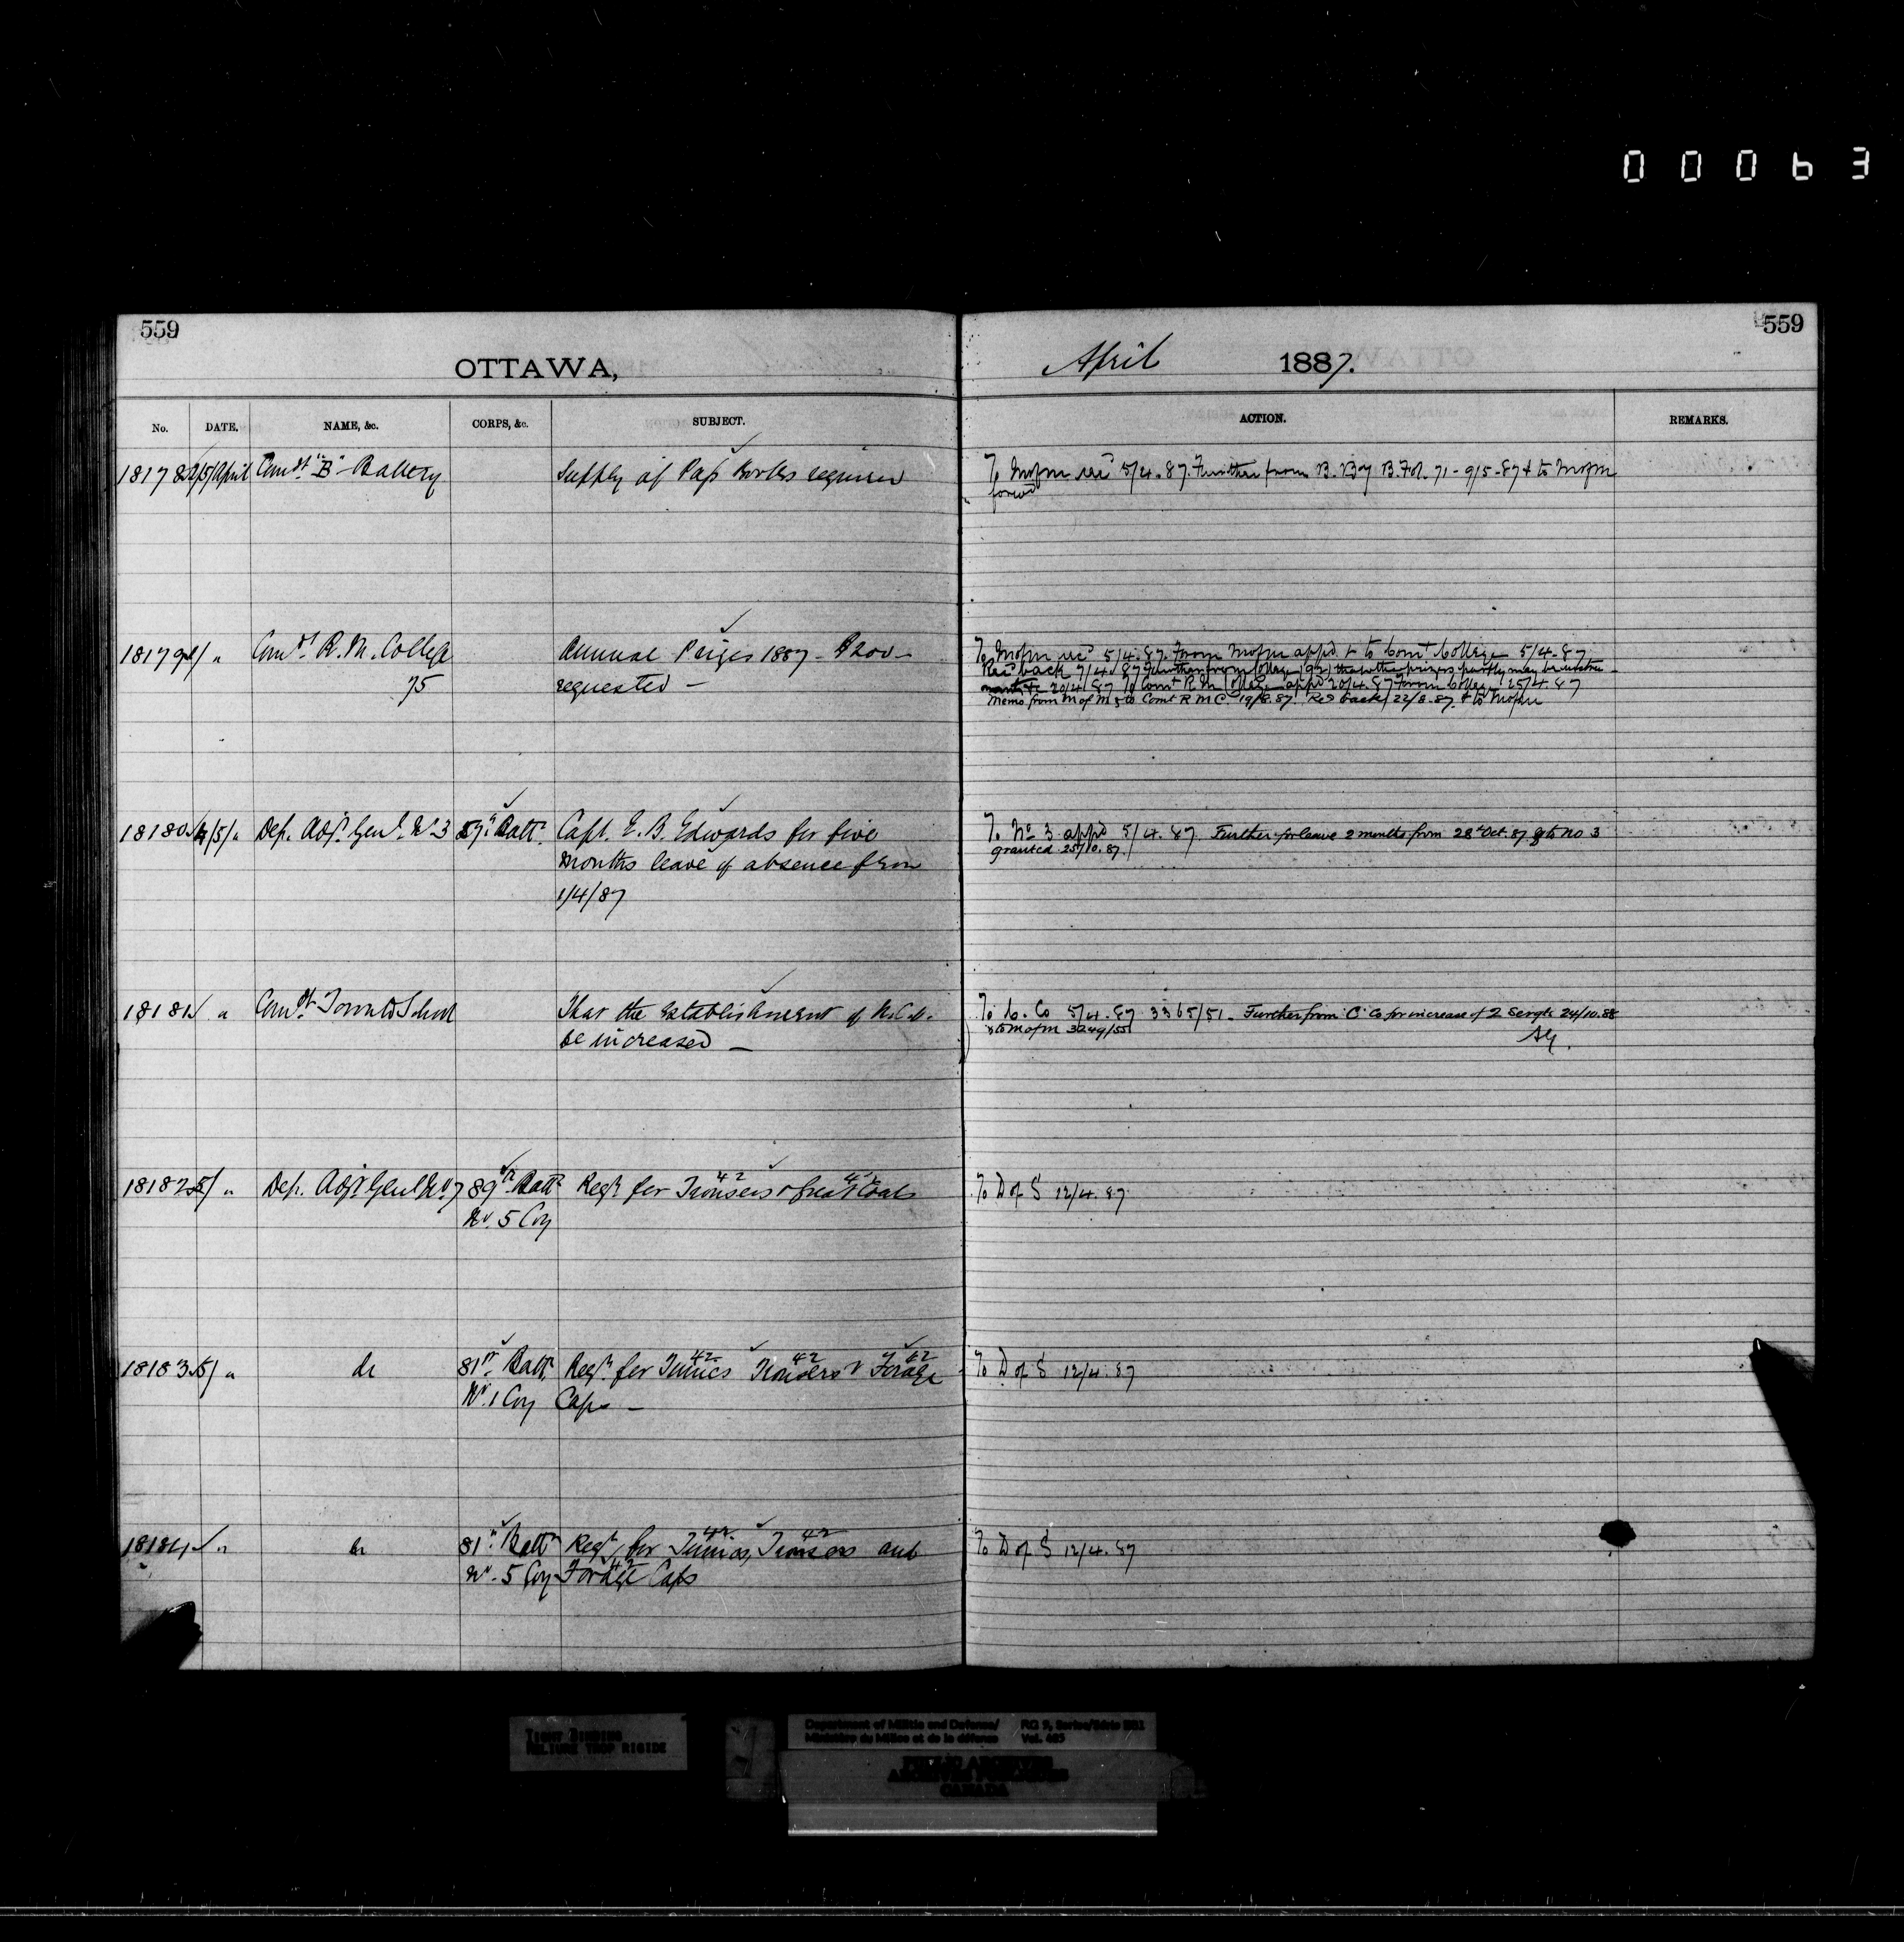 00063
559
559
OTTAWA,
April 1887.
No. DATE. NAME, &c. CORPS, &c. SUBJECT. ACTION. REMARKS.
18178 5/April Comdt "B" Battery Supply of Pass Books required To M of M rec'd 5/4.87. Further from B. By B. Fol. 71 - 9/5-87 & to M of M
forw'd
18179 " Comdt. R. M. College Annual Prizes 1887 - $200 - To M of M rec'd 5/4.87. From M of M app'd & to Com't College 5/4.87
75 requested - Rec'd back 7/4.87 Further from College (92) that other prizes may be
20/4.87 To Com't R. M. College app'd 20/4.87 From College 25/4.87
Memo from M of M & to Com't R M C. 19/8.87. Rec'd back 22/8.87. & to M of M
18180 4/5/ " Dep. Adj. Genl. No 3 57th Battn. Capt. E. B. Edwards for five To No 3 app'd 5/4.87 Further for leave 2 months from 28th Oct. 87 & to No 3
months leave of absence from granted 25/10.87.
1/4/87
18181 " Comdt Toronto School That the establishment of N.C.O. To C. Co 5/4.87 3365/51 - Further from 'C' Co for increase of 2 Sergts 24/10.88
be increased - & to M of M 3249/55
AG.
18182 5/ " Dep. Adjt Genl No 7 89th Battn Reqn for Trousers 42 & Great Coats 42 To D of S 12/4.87
No. 5 Coy
18183 5/ " do 81st Battn Reqn for Tunics 42 Trousers 42 & Forage 42 To D of S 12/4.87
No. 1 Coy Caps -
18184 " do 81st Battn Reqn for Tunics 42, Trousers 42 and To D of S 12/4.87
No. 5 Coy Forage 42 Caps
TIGHT BINDING
RELIURE TROP RIGIDE
Department of Militia and Defence/ RG 9, Series/Série
Ministère de Milice et de la défense Vol.
PUBLIC ARCHIVES
ARCHIVES PUBLIQUES
CANADA